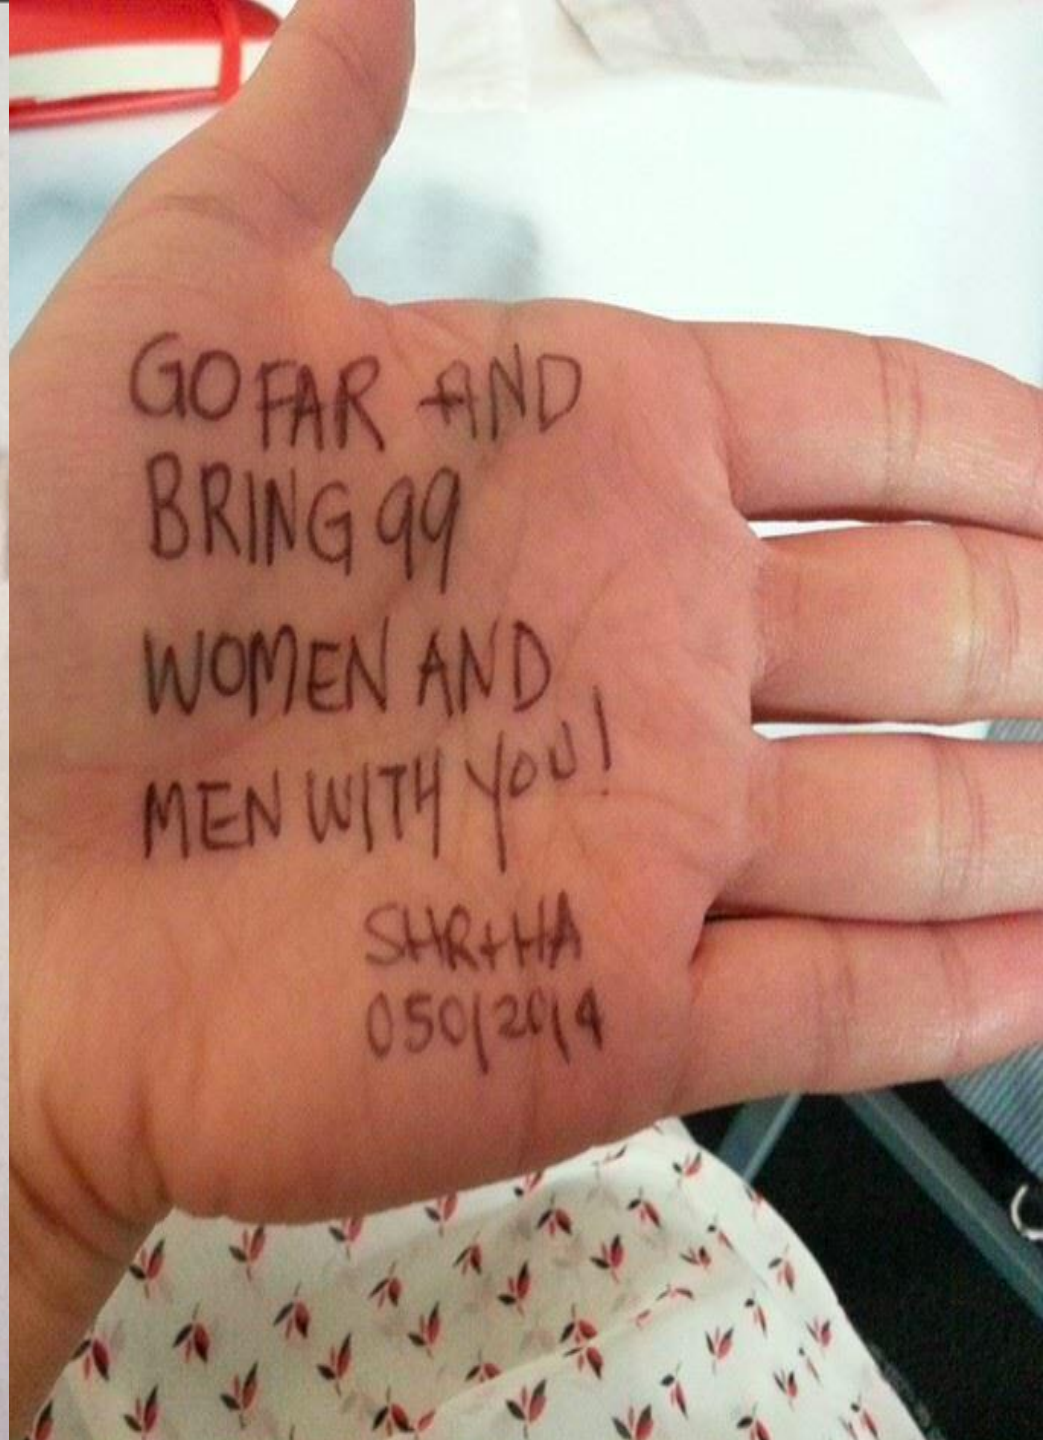 GO FAR AND
BRING 99
WOMEN AND
MEN WITH YOU!
SHR+HA
050/2014